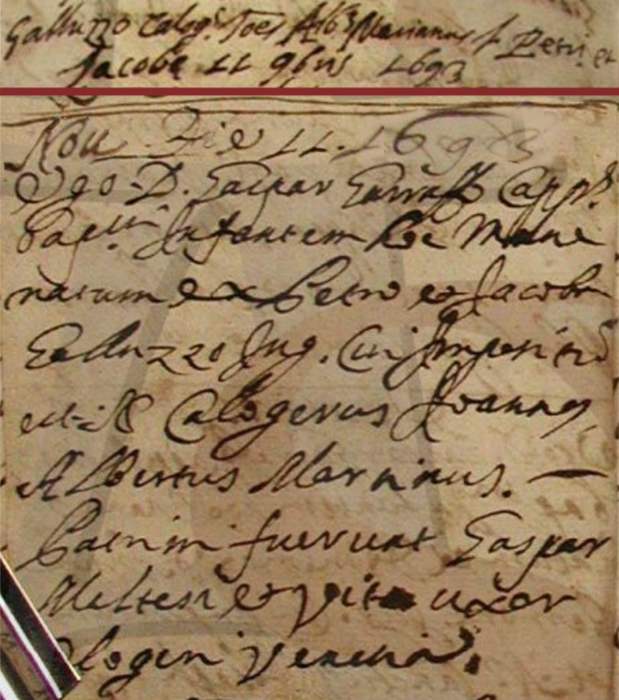 Galluzzo Calog. Joes Alb. Marianus f. Petri et
Jacobe 11 9bris 1693
Nou Die 11. 1693
Ego D. Gaspar Capp.
Bap. Infantem hoc mane
natum ex Petro et Jacoba
Galluzzo Jug. Cui Impositu
est N Calogerus Joannes
Albertus Marianus. —
Patrini fuerunt Gaspar
Maltesi et Vita uxor
Calogeri